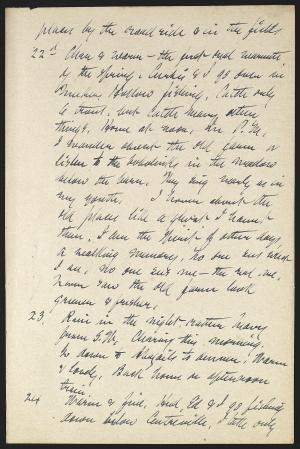 places by the road side & in the fields
22d Clear & warm – the first real warmth
of the Spring. Curtis & I go over in
Meeker Hollow fishing. Curtis only
6 trout, but Curtis many other
things. Home at noon. In P.M.
I wander about the old farm &
listen to the bobolinks in the meadow
below the barn. They sing nearly as in
my youth. I hover about the
old places like a ghost. I haunt
them. I am the spirit of other days,
a walking memory. No one sees what
I see. No one sees me – the real me.
Never saw the old farm look
greener & fresher.
23 Rain in the night – rather heavy
from S.W. Clearing this morning.
Go down to Abigails to dinner. Warm
& lovely. Back home on afternoon
train.
24 Warm & fine. Hud, Ed & I go fishing
down below Centreville, I take only